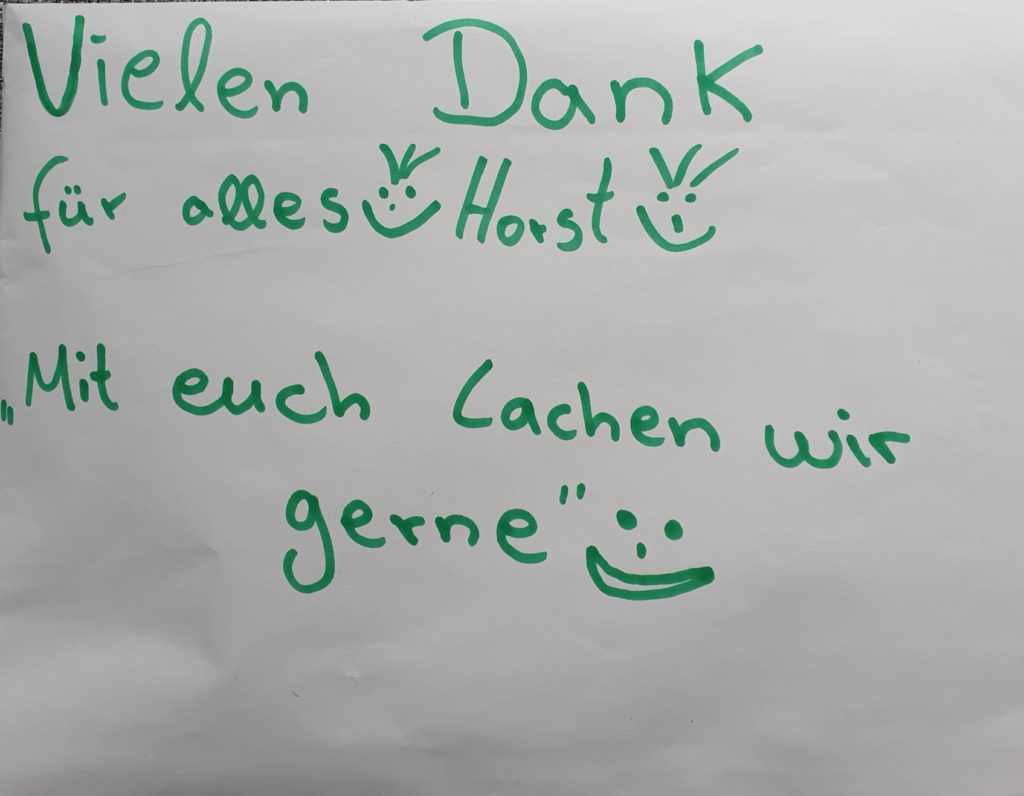 Vielen Dank
für alles Horst
„Mit euch Lachen wir
gerne"